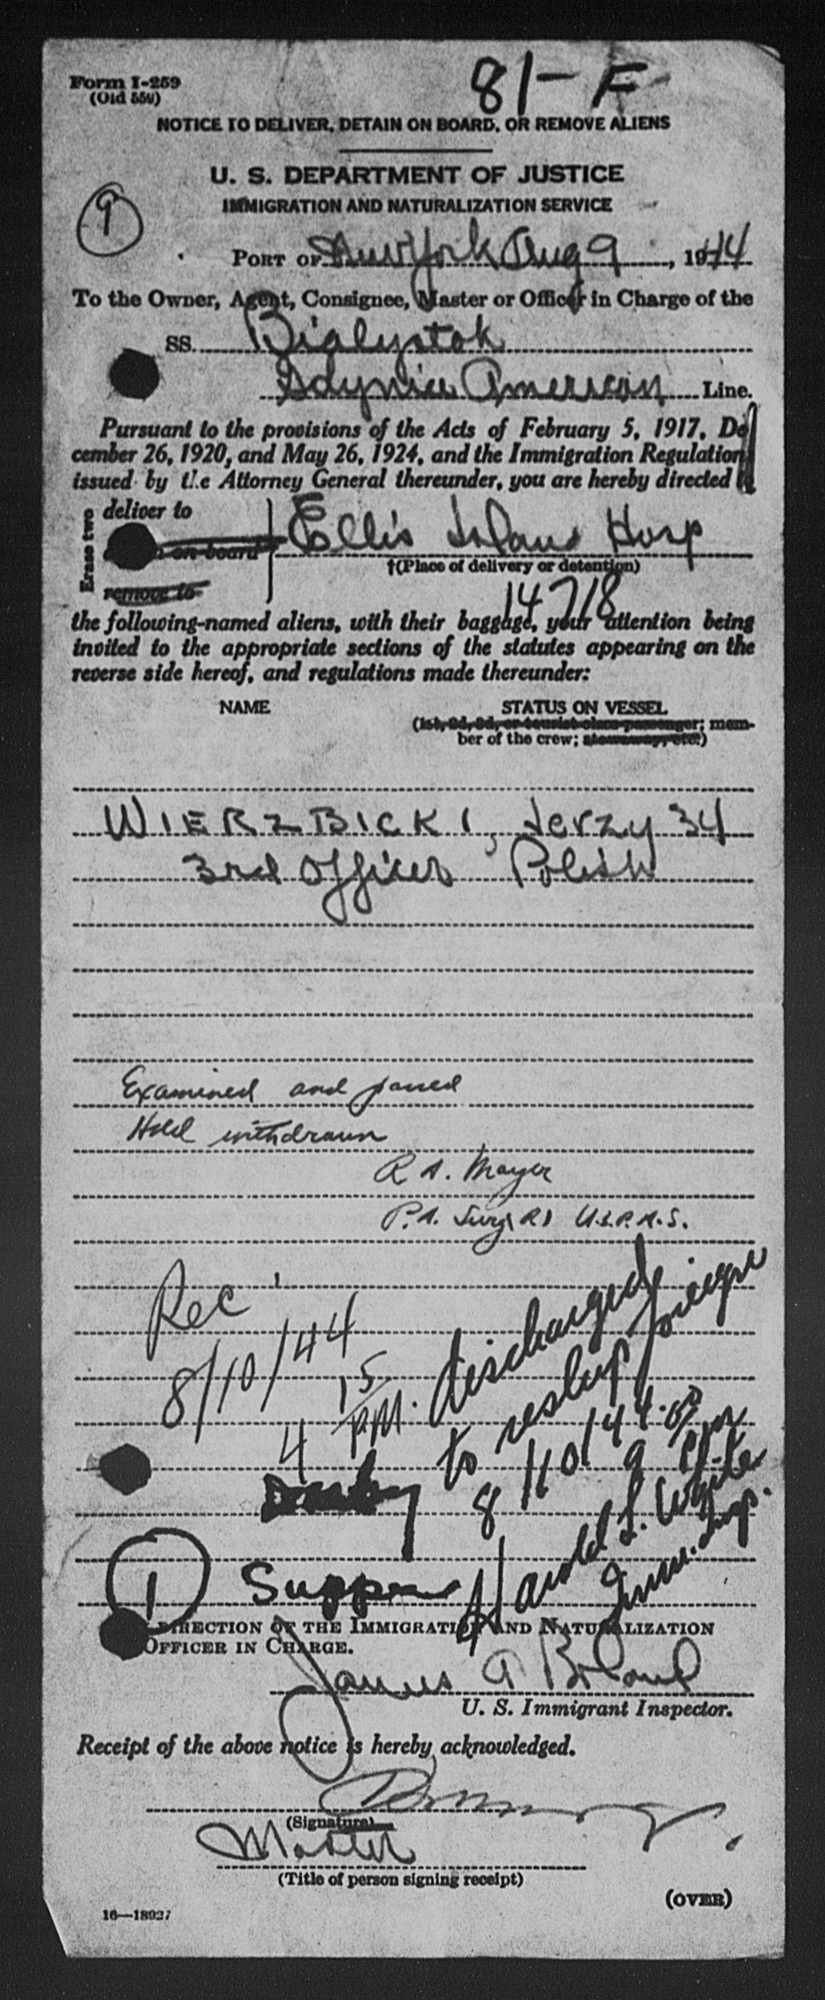 Form I-259
(Old 550)
81-F
NOTICE TO DELIVER, DETAIN ON BOARD, OR REMOVE ALIENS
U. S. DEPARTMENT OF JUSTICE
IMMIGRATION AND NATURALIZATION SERVICE
9
PORT OF New York Aug 9, 1944
To the Owner, Agent, Consignee, Master or Officer in Charge of the
SS. Bialystok
Gdynia American Line.
Pursuant to the provisions of the Acts of February 5, 1917, De-
cember 26, 1920, and May 26, 1924, and the Immigration Regulations
issued by the Attorney General thereunder, you are hereby directed to
Erase two
deliver to
on board
Ellis Island Hosp
†(Place of delivery or detention)
remove to
14718
the following-named aliens, with their baggage, your attention being
invited to the appropriate sections of the statutes appearing on the
reverse side hereof, and regulations made thereunder:
NAME
STATUS ON VESSEL
(1st, 2d, 3d, or tourist class passenger; mem-
ber of the crew; stowaway, etc.)
WIERZBICKI, Jerzy 34
3rd Officer Polish
Examined and passed
Hold withdrawn
R A. Mayer
P.A. Surg (R) U.S.P.H.S.
Rec'
8/10/44
4 15 PM.
discharged
to reship foreign
8/10/44. 9 00 PM
Harold L. White
Imm. Insp.
1 Supper
DIRECTION OF THE IMMIGRATION AND NATURALIZATION
OFFICER IN CHARGE.
James A Boland
U. S. Immigrant Inspector.
Receipt of the above notice is hereby acknowledged.
(Signature)
Master
(Title of person signing receipt)
(OVER)
16—18927